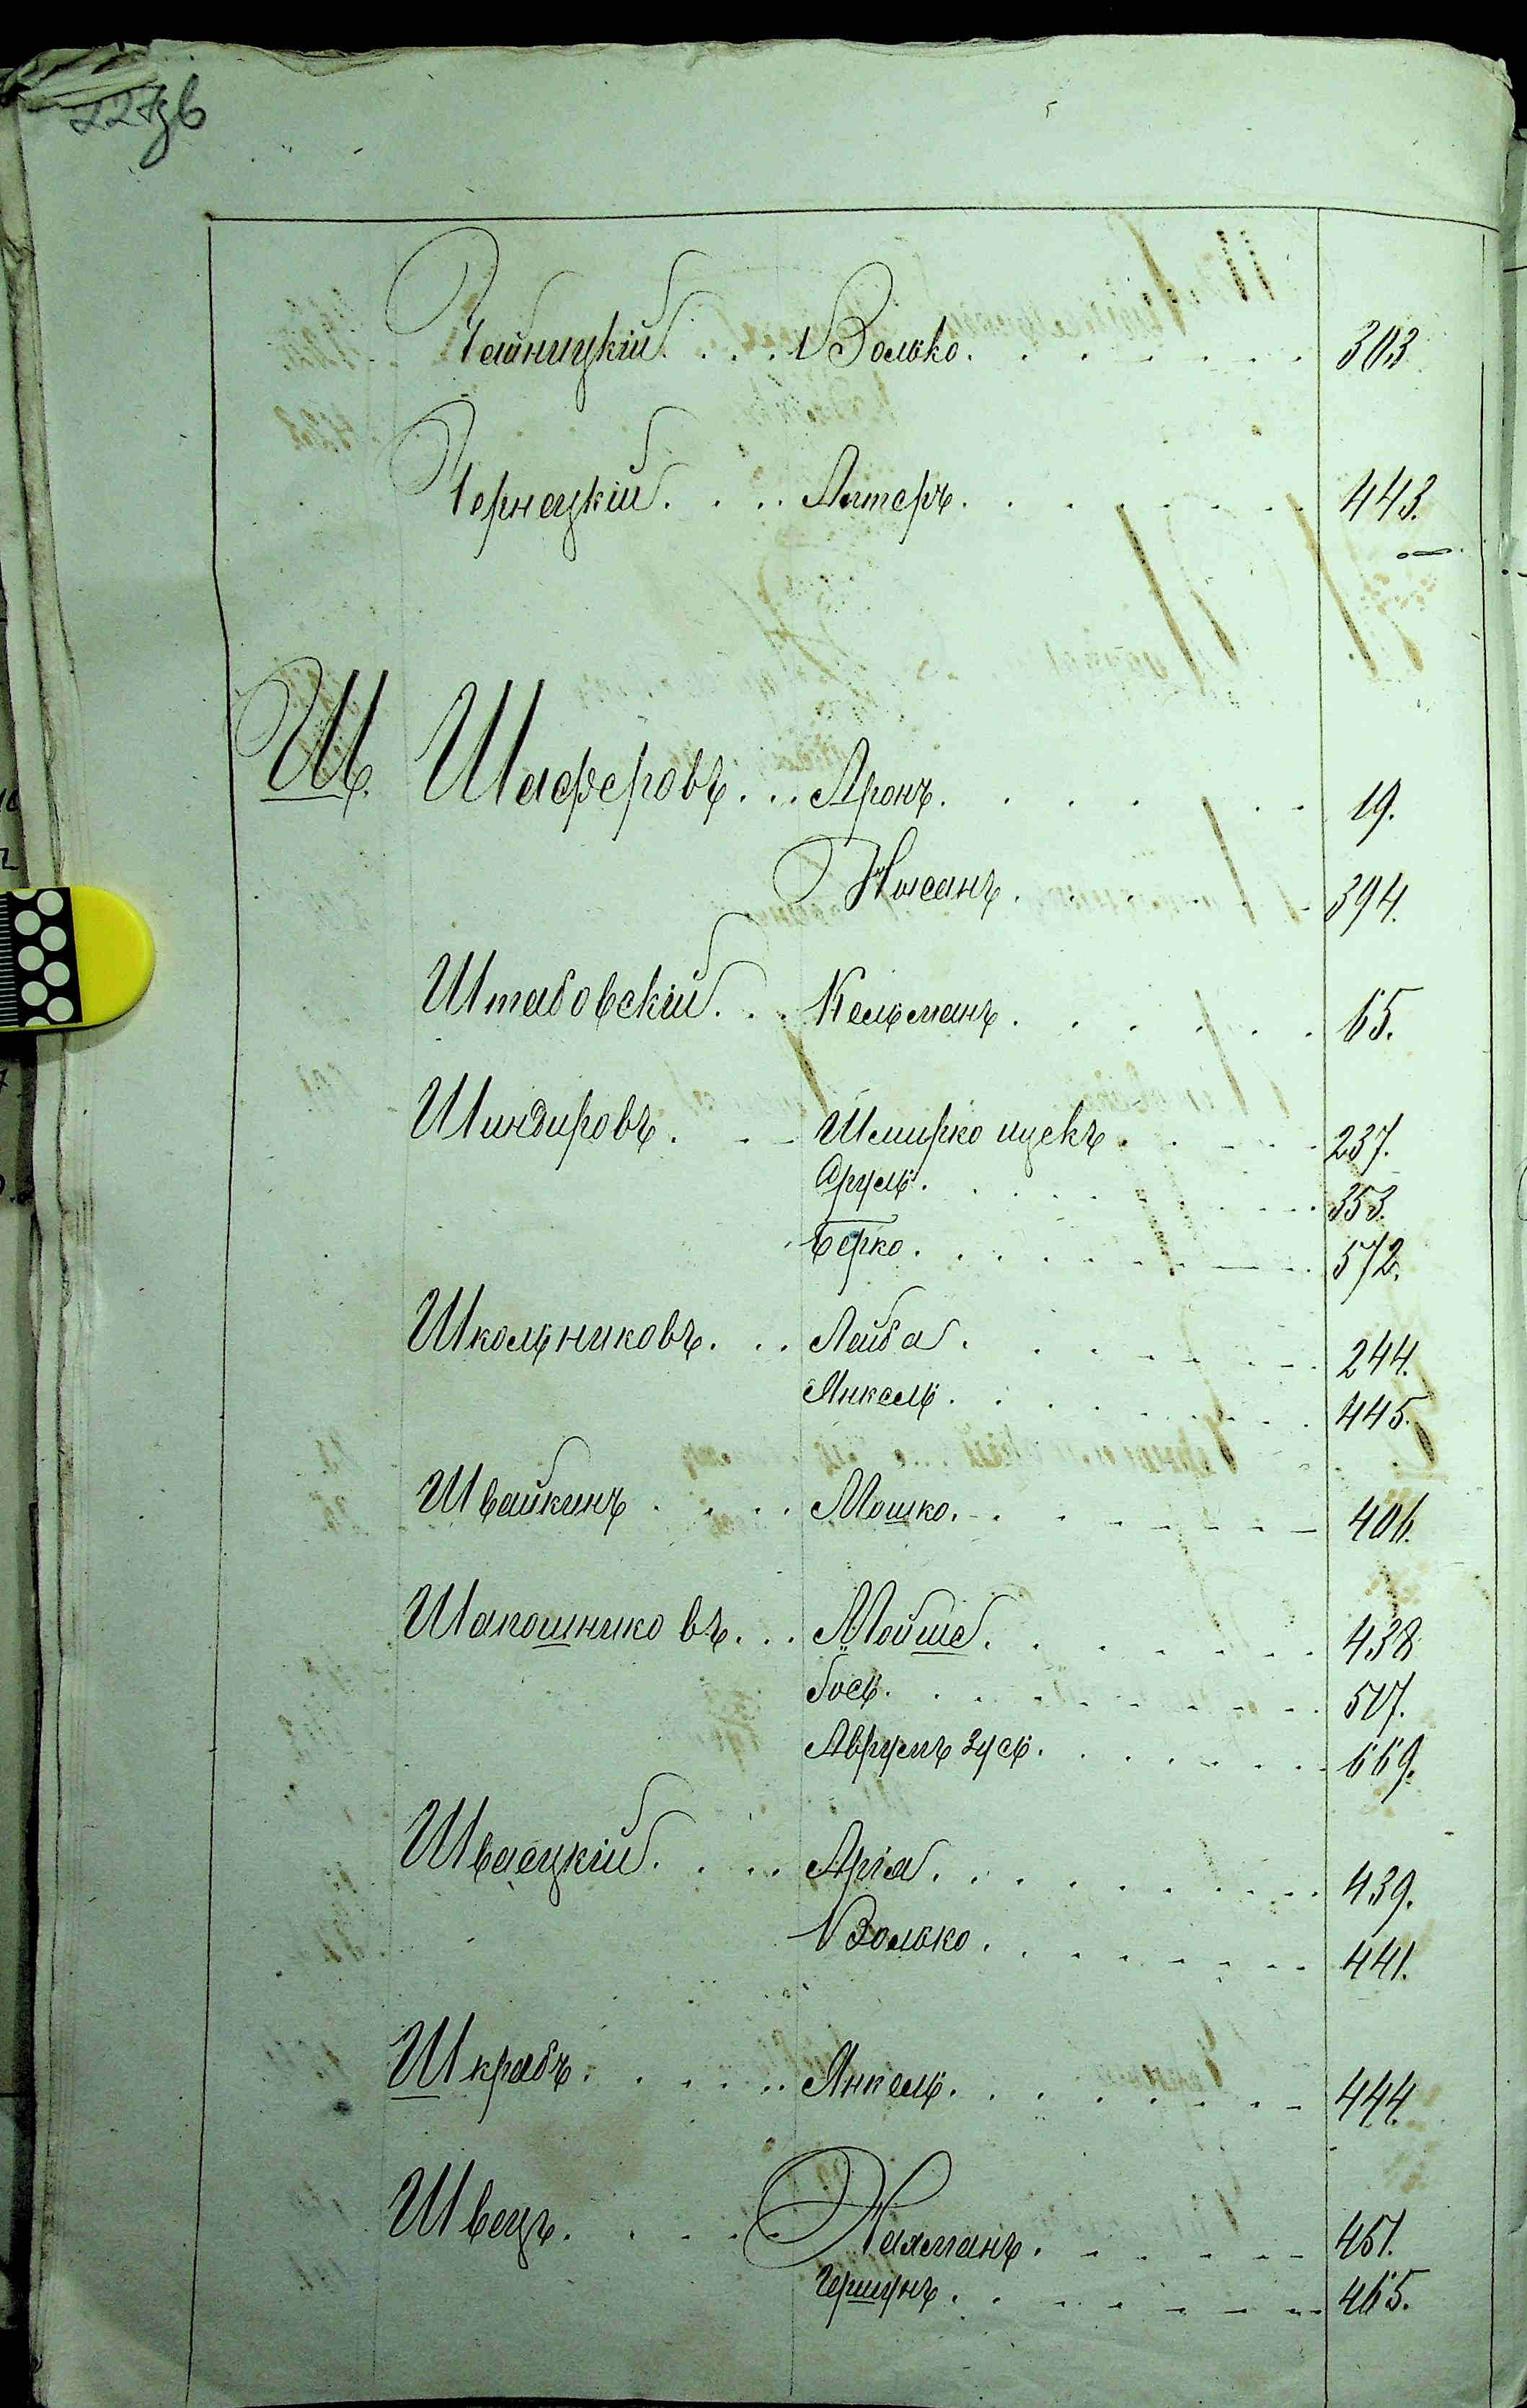 227зв
Чайницкій. . . . Волько. 303
Чернецкій. . . . Алтеръ. 443.
Ш. Шаферовъ. . . Аронъ. 19.
Нысанъ. 394.
Штабовскій. . . Кельманъ. 65.
Шиндировъ. . . Шмирко ицекъ. 237.
Сруль. 353.
Берко. 572.
Школьниковъ. . . Лейба. 244.
Янкель. 445.
Швайкинъ . . . . Мошко. 406.
Шапошниковъ. . . Мойше. 438
Іось. 507.
Аврумъ Зусь. 669.
Швасцкій. . . . Арія. 439.
Волько. 441.
Шкрабъ. . . . . Янкель. 444.
Швецъ. . . . . Нахманъ. 451.
Гершунъ. 465.